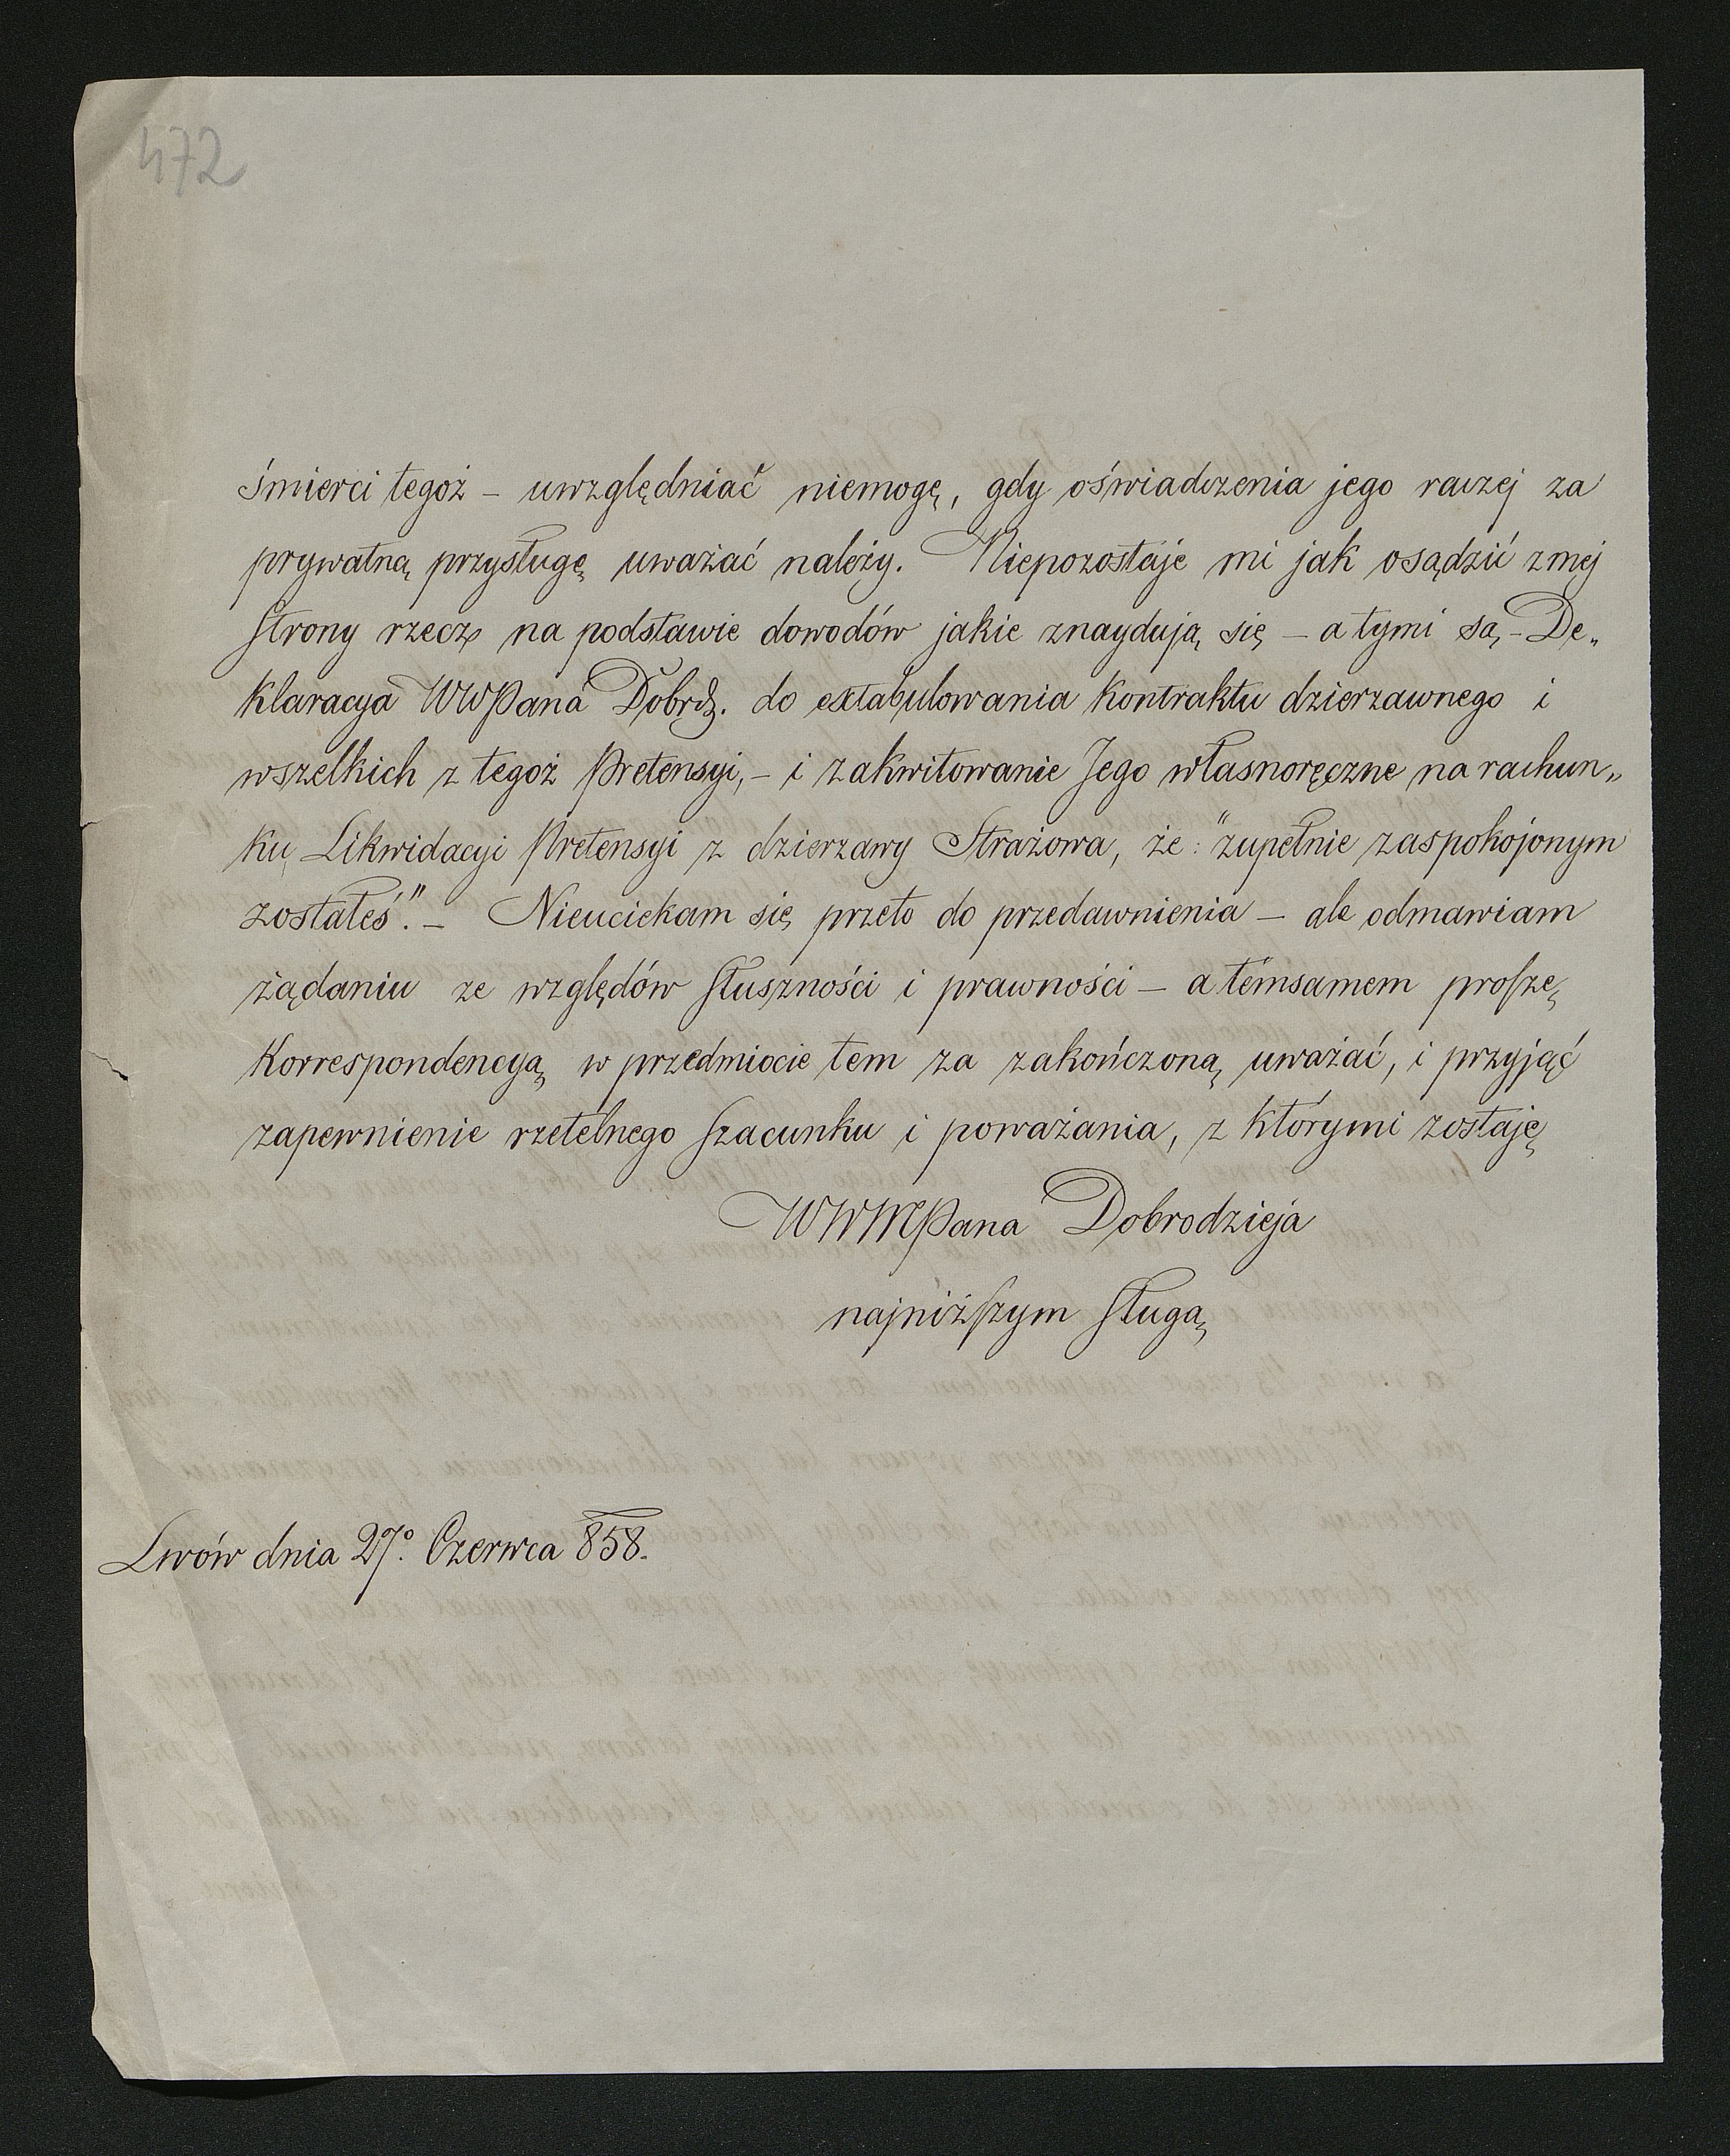 472
śmierci tegoż – uwzględniać niemogę, gdy oświadczenia jego raczej za
prywatną przysługę uważać należy. Niepozostaje mi jak osądzić z mej
strony rzecz na podstawie dowodów jakie znaydują się – a tymi są – De„
klaracya WWPana Dobrdz. do extabulowania kontraktu dzierzawnego i
wszelkich z tegoż Pretensyi, – i zakwitowanie Jego własnoręczne na rachun„
ku Likwidacyi Pretensyi z dzierzawy Strażowa, że: "zupełnie zaspokojonym
zostałeś". – Nieuciekam się przeto do przedawnienia – ale odmawiam
żądaniu ze względów słuszności i prawności – a témsamem proszę
Korrespondencyą w przedmiocie tem za zakończoną uważać, i przyjąć
zapewnienie rzetelnego szacunku i poważania, z którymi zostaję
WWMPana Dobrodzieja
najniższym sługą
Lwów dnia 27º. Czerwca 858.